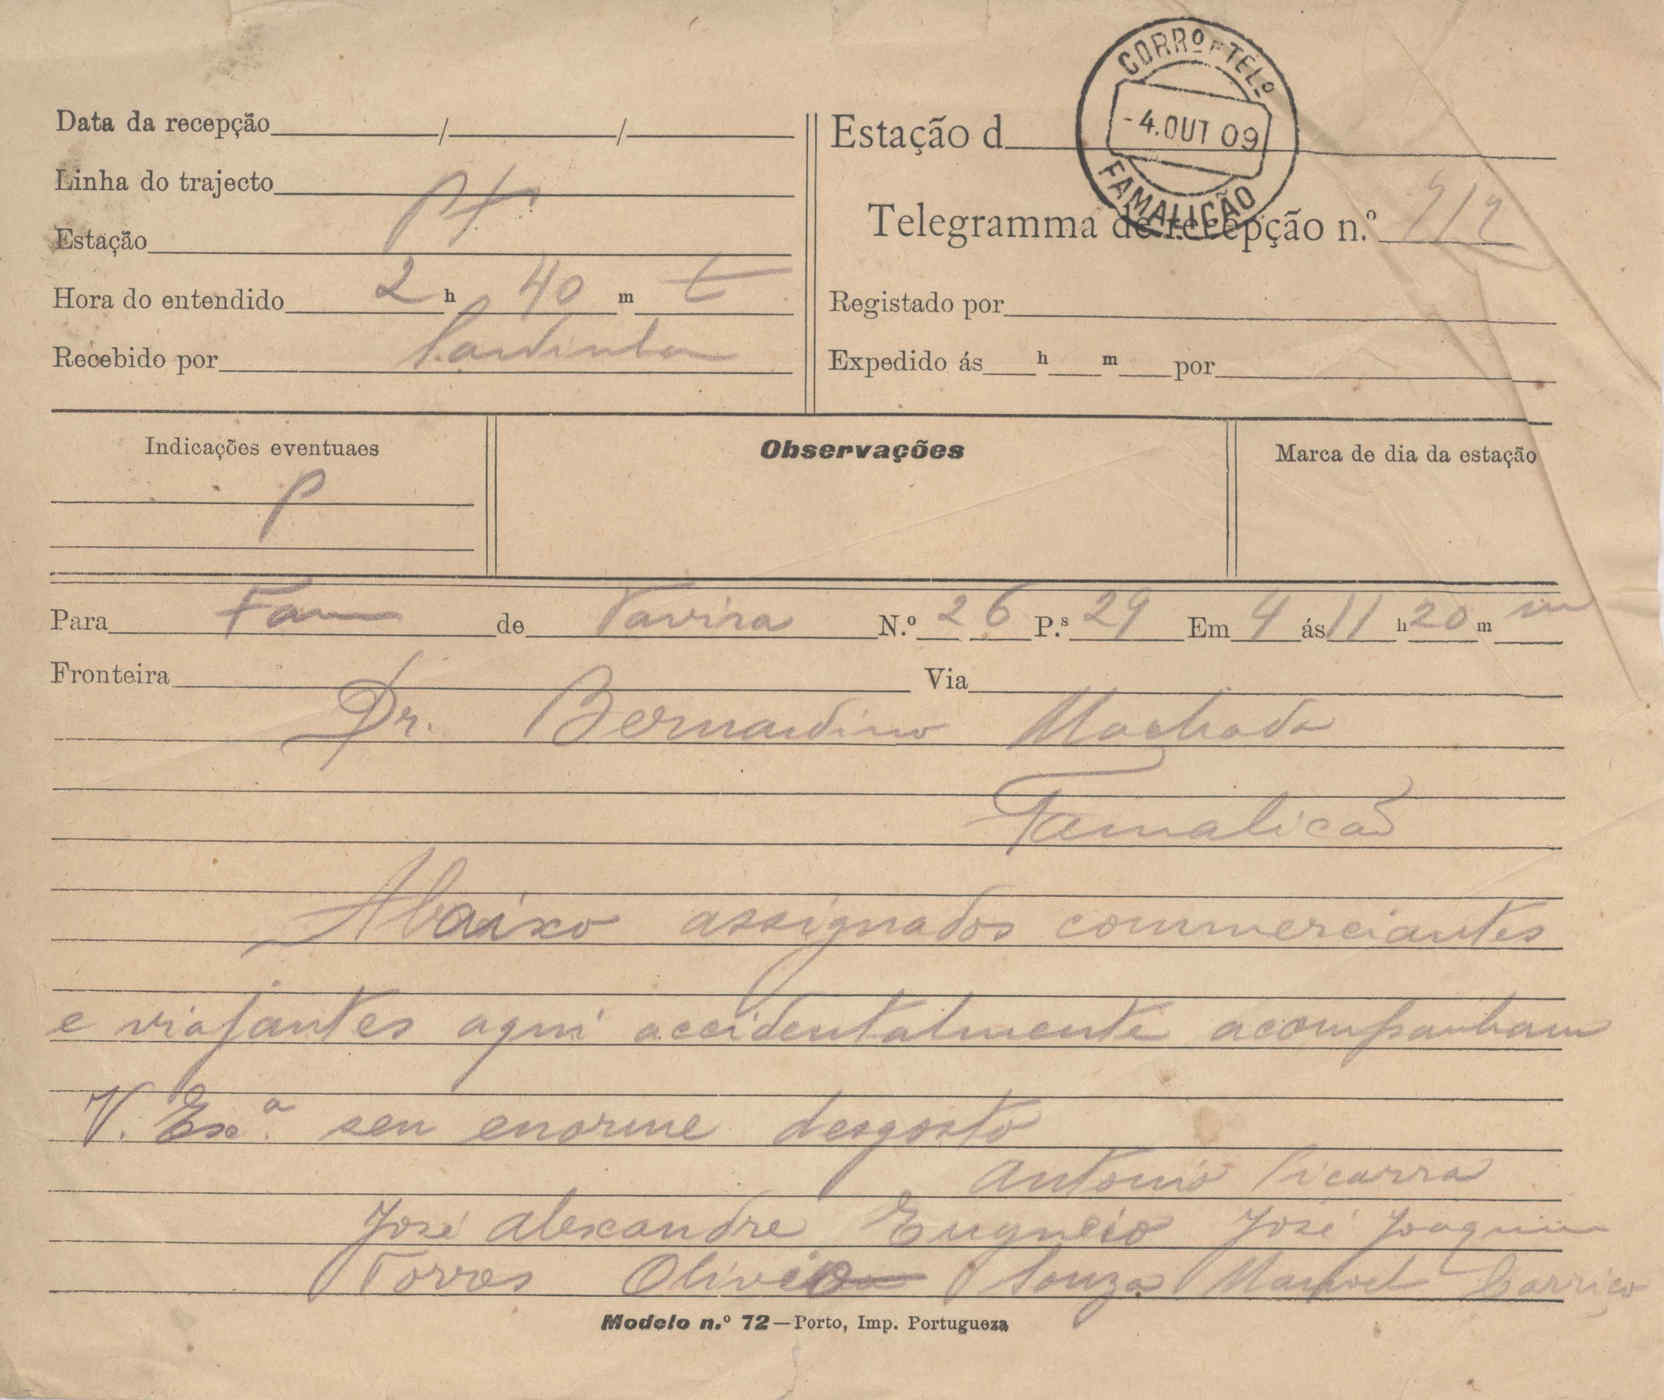 CORRº E TELº
-4.OUT 09
FAMALICÃO
Data da recepção / /
Linha do trajecto
Estação Pt
Hora do entendido 2 h 40 m t
Recebido por Sardinha
Estação d
Telegramma de recepção n.º
Registado por
Expedido ás h m por
Indicações eventuaes
P
Observações
Marca de dia da estação
Para Fam de Tavira N.º 26 P.s 29 Em 4 ás 11 h 20 m m
Fronteira Via
Dr. Bernardino Machado
Famalicão
Abaixo assignados commerciantes
e viajantes aqui accidentalmente acompanham
V. Exª seu enorme desgosto
Antonio Picarra
José Alexandre Eugneio José Joaquim
Torres Oliveira Souza Manoel Carriço
Modelo n.º 72—Porto, Imp. Portugueza